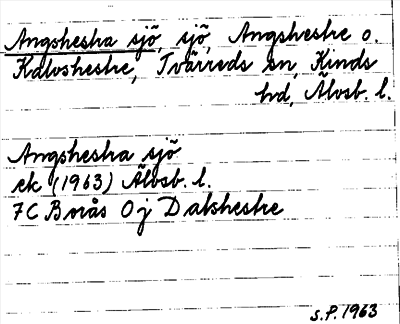 Angsheska sjö, sjö, Angsheske o.
Kalvsheske, Tvärreds sn, Kinds
hd, Älvsb. l.
Angsheska sjö
ek (1963) Älvsb. l.
7C Borås 0j Dalsheske
S.P. 1963